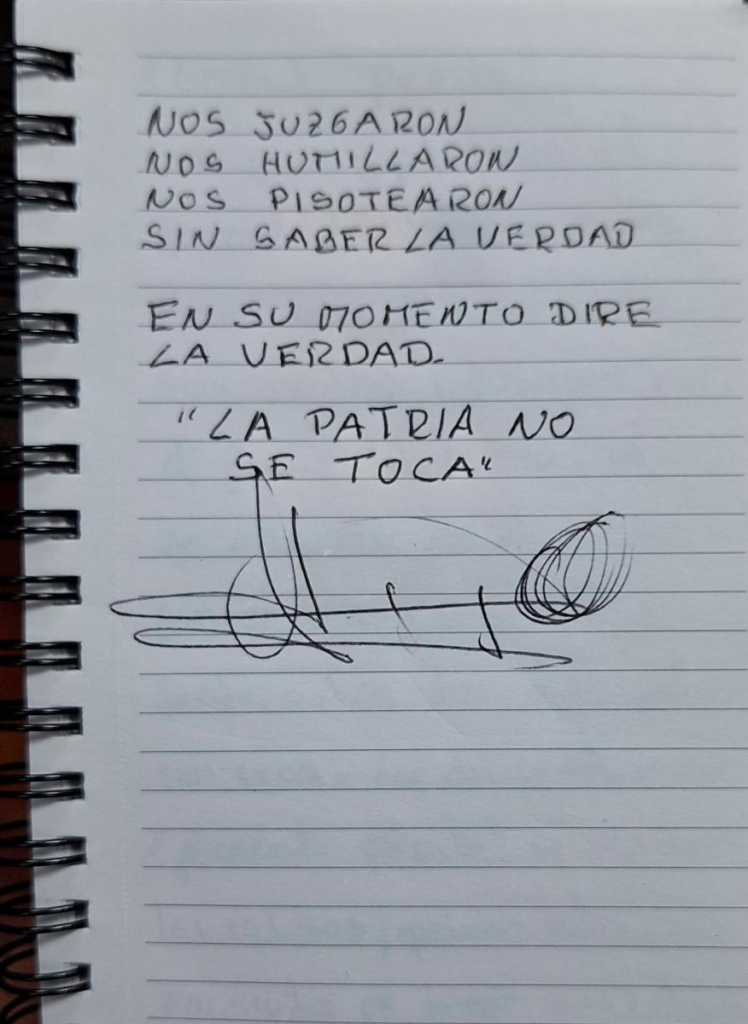 NOS JUZGARON
NOS HUMILLARON
NOS PISOTEARON
SIN SABER LA VERDAD
EN SU MOMENTO DIRE
LA VERDAD.
"LA PATRIA NO
SE TOCA"